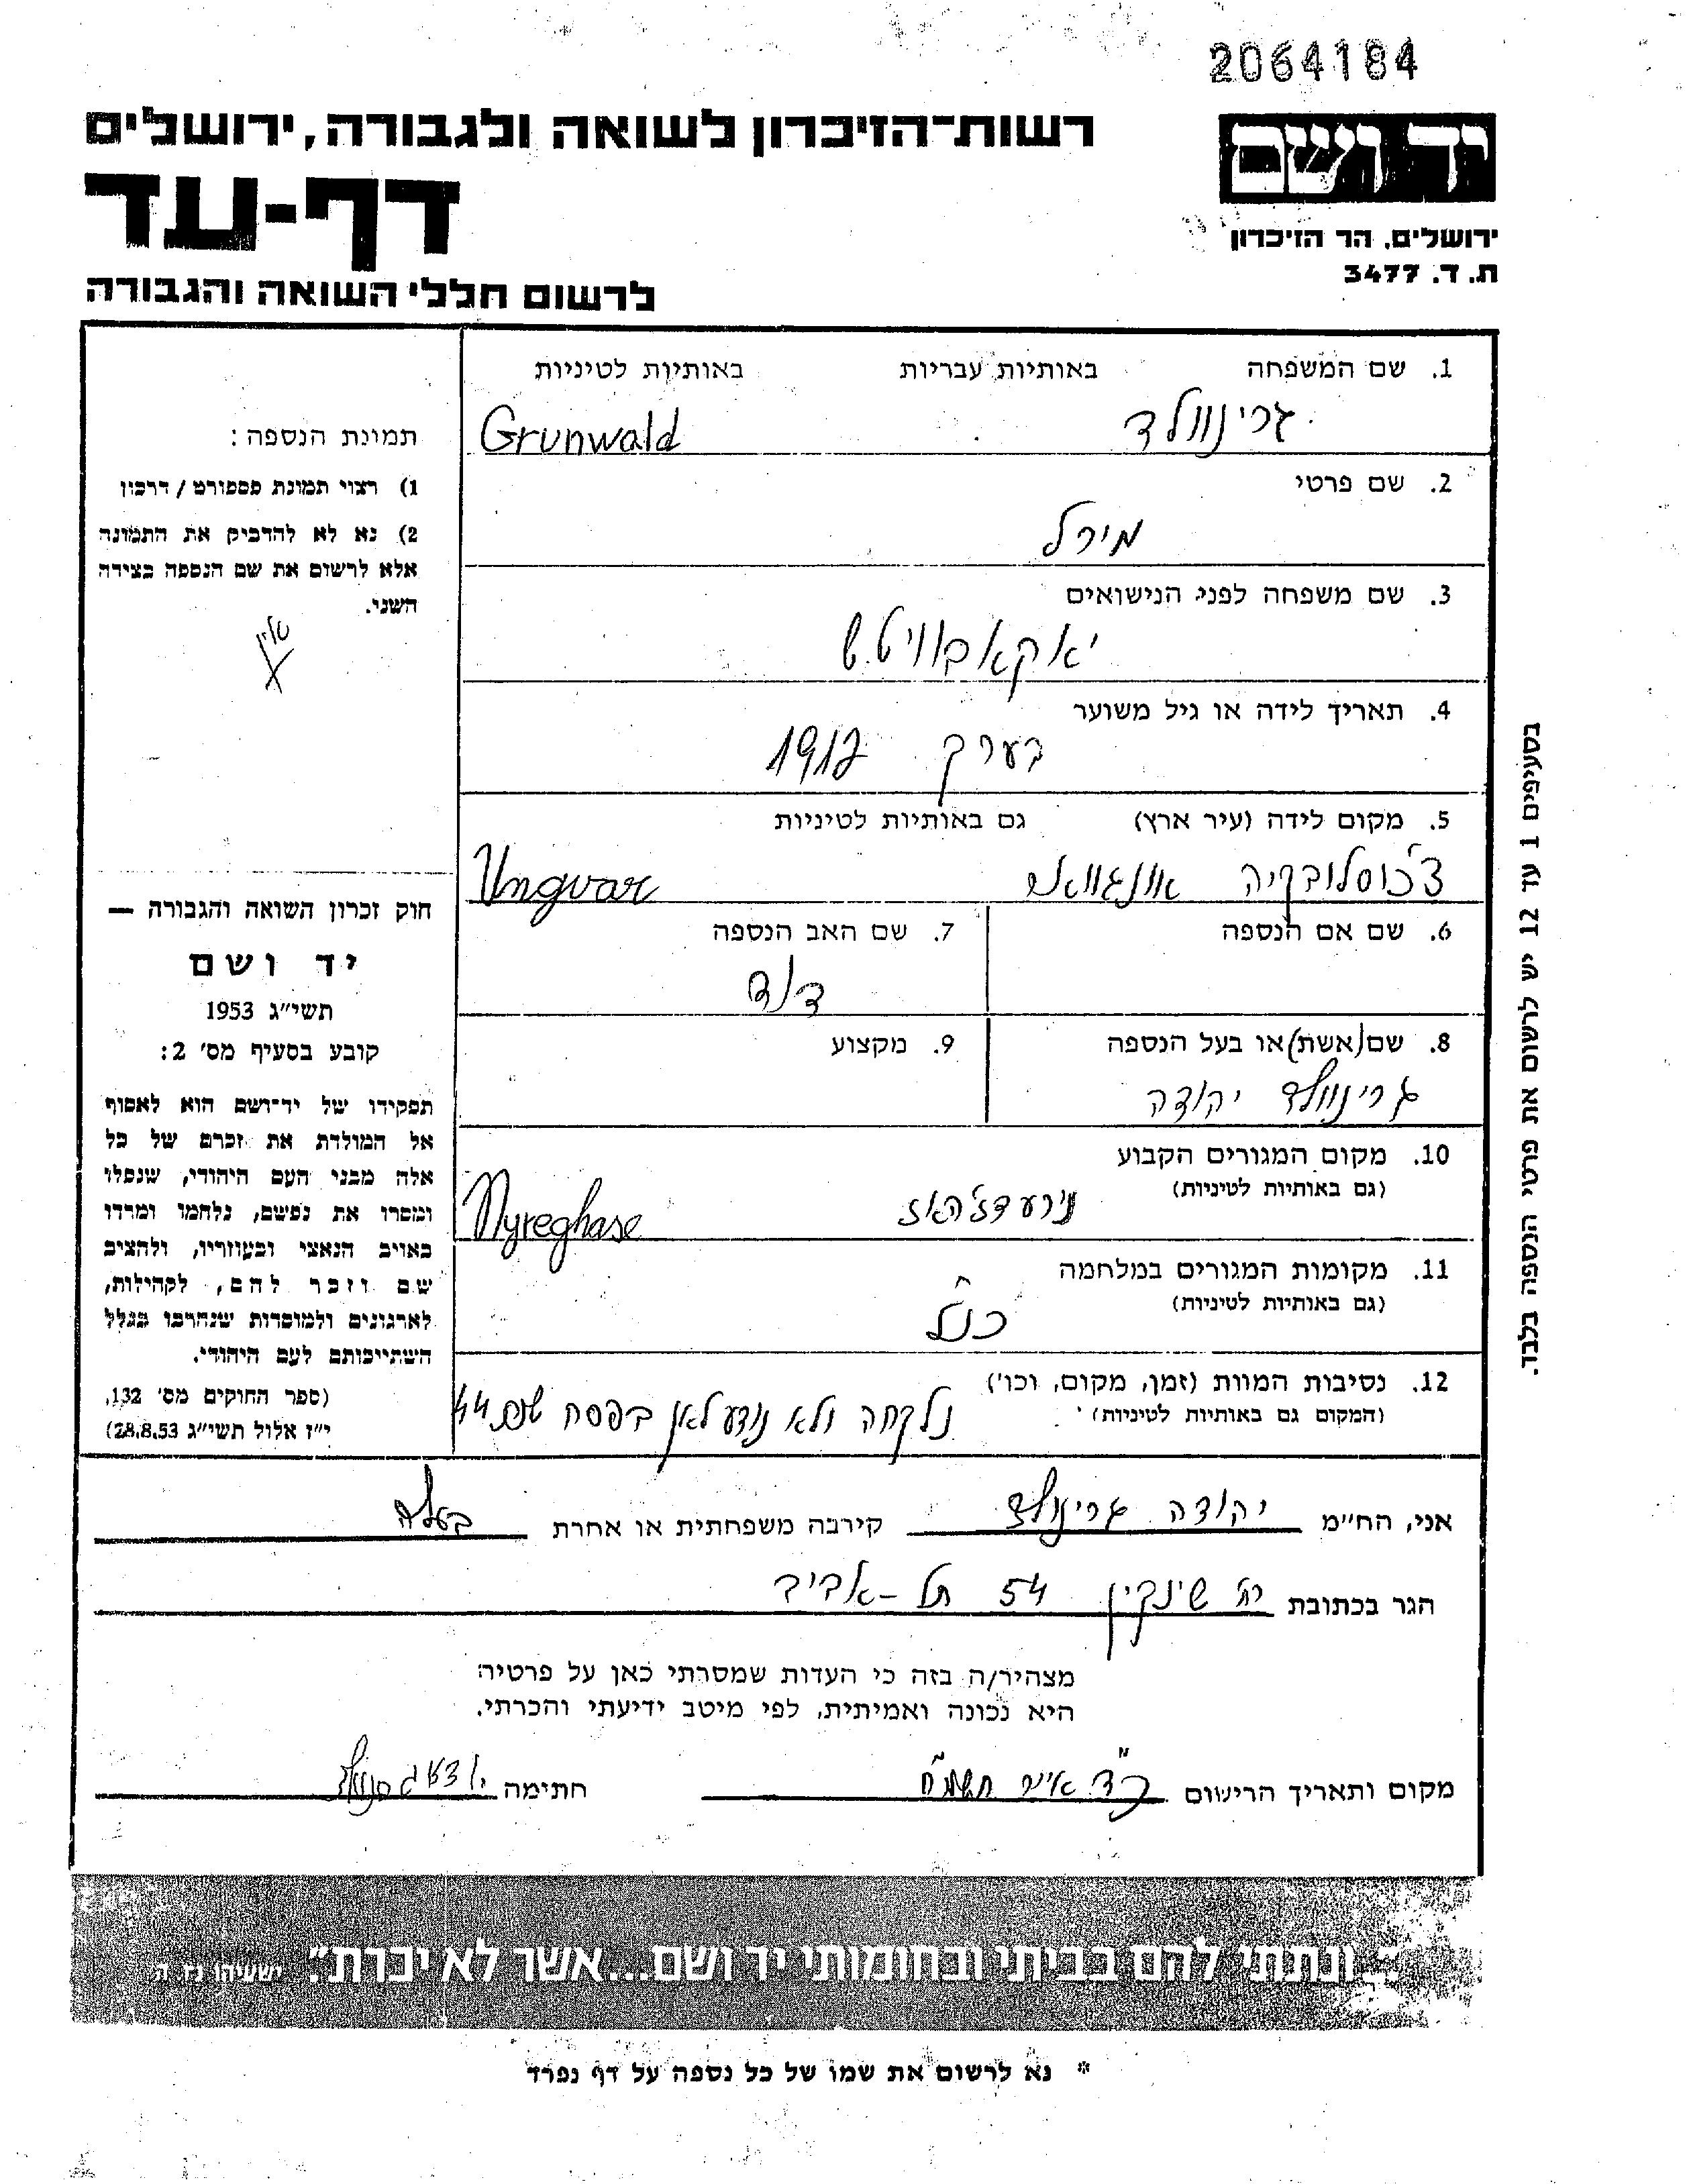 2064184
רשות־הזיכרון לשואה ולגבורה, ירושלים
יד ושם
דף-עד
ירושלים, הר הזיכרון
ת. ד. 3477
לרשום חללי השואה והגבורה
1. שם המשפחה באותיות עבריות באותיות לטיניות
גרינוולד Grunwald
2. שם פרטי
מירל
3. שם משפחה לפני הנישואים
יאקאבוויטש
4. תאריך לידה או גיל משוער
בערך 1912
5. מקום לידה (עיר ארץ) גם באותיות לטיניות
צ'כוסלובקיה Ungvar
6. שם אם הנספה 7. שם האב הנספה
דוד
8. שם (אשת) או בעל הנספה 9. מקצוע
גרינוולד יהודה
10. מקום המגורים הקבוע
(גם באותיות לטיניות)
Nyreghase
11. מקומות המגורים במלחמה
(גם באותיות לטיניות)
כנ"ל
12. נסיבות המוות (זמן, מקום, וכו')
(המקום גם באותיות לטיניות)
נלקחה ולא נודע לאן בפסח שנת 44
תמונת הנספה:
1) רצוי תמונת פספורט / דרכון
2) נא לא להדביק את התמונה
אלא לרשום את שם הנספה בצידה
השני.
חוק זכרון השואה והגבורה —
יד ושם
תשי"ג 1953
קובע בסעיף מס' 2:
תפקידו של יד־ושם הוא לאסוף
אל המולדת את זכרם של כל
אלה מבני העם היהודי, שנפלו
ומסרו את נפשם, נלחמו ומרדו
באויב הנאצי ובעוזריו, ולהציב
שם וזכר להם, לקהילות,
לארגונים ולמוסדות שנחרבו בגלל
השתייכותם לעם היהודי.
(ספר החוקים מס' 132,
י"ז אלול תשי"ג 28.8.53)
בסעיפים 1 עד 12 יש לרשום את פרטי הנספה בלבד.
אני, הח"מ יהודה גרינולד קירבה משפחתית או אחרת בעלה
הגר בכתובת רח' שינקין 54 תל-אביב
מצהיר/ה בזה כי העדות שמסרתי כאן על פרטיה
היא נכונה ואמיתית, לפי מיטב ידיעתי והכרתי.
מקום ותאריך הרישום כ"ד אייר תשמ"ח חתימה
"ונתתי להם בביתי ובחומותי יד ושם...אשר לא יכרת". ישעיהו נו, ה
* נא לרשום את שמו של כל נספה על דף נפרד